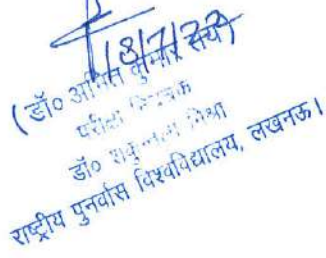 18/7/22
(डॉ० अमित कुमार राय)
परीक्षा नियंत्रक
डॉ० शकुन्तला मिश्रा
राष्ट्रीय पुनर्वास विश्वविद्यालय, लखनऊ।